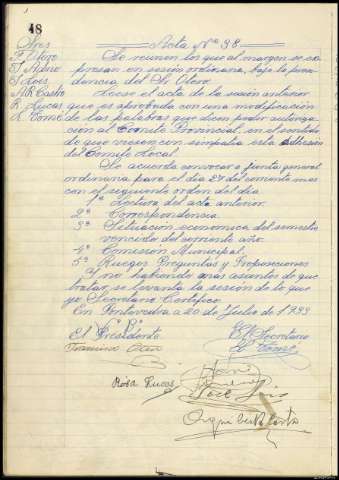 48
Sres Acta Nº 38
F. Otero Se reunen los que al margen se ex
presan en sesión ordinaria, bajo la presi
dencia del Sr. Otero.
A R Castro Leese el acta de la sesión anterior
R. Lucas que es aprobada con una modificación
R. Tomé de las palabras que dicen pedir autoriza
ción al Comite Provincial, en el sentido
de que viesen con simpatia esta adhesión
del Comite Local.
Se acuerda convocar a junta general
ordinaria para el dia 27 del corriente mes
con el siguiente orden del dia
1º Lectura del acta anterior
2º Correspondencia.
3º Situacion economica del semestre
vencido del corriente año.
4º Comisión Municipal
5º Ruegos Preguntas y Proposiciones
Y no habiendo mas asuntos de que
tratar, se levanta la sesión de lo que
yo, Secretario Certifico.
En Pontevedra a 20 de Julio de 1933
Vº Bº
El Presidente El Secretario
Francisco Otero R. Tomé
Rosa Lucas